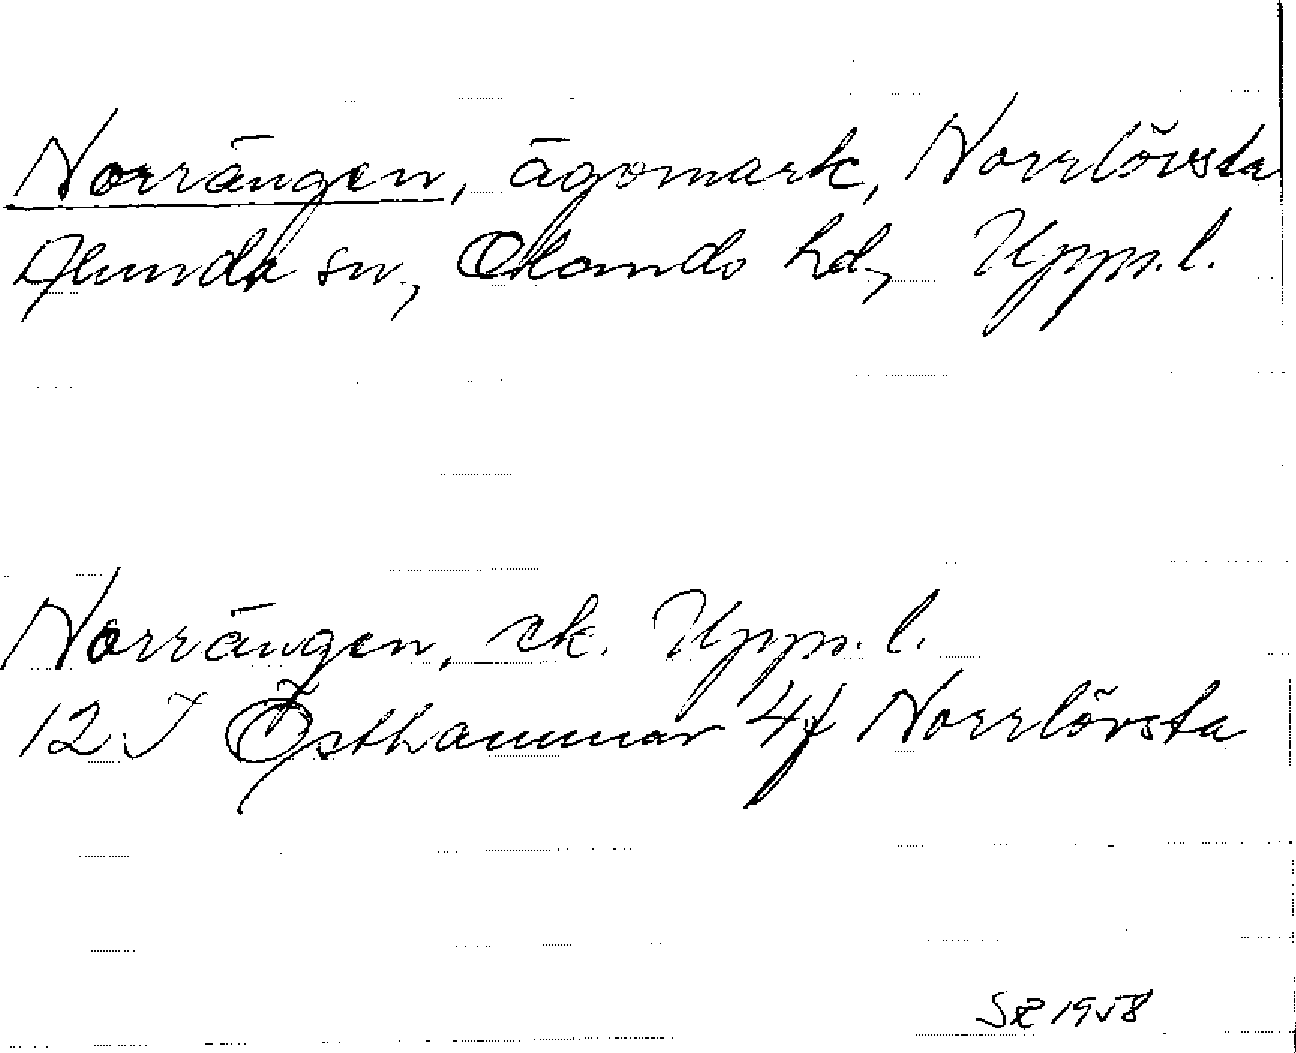 Norrängen, ägomark, Norrlövsta
Alunda sn, Olands hd, Uppl.
Norrängen, ek. Uppl.
12 I Östhammar 4f Norrlövsta
SR 1958